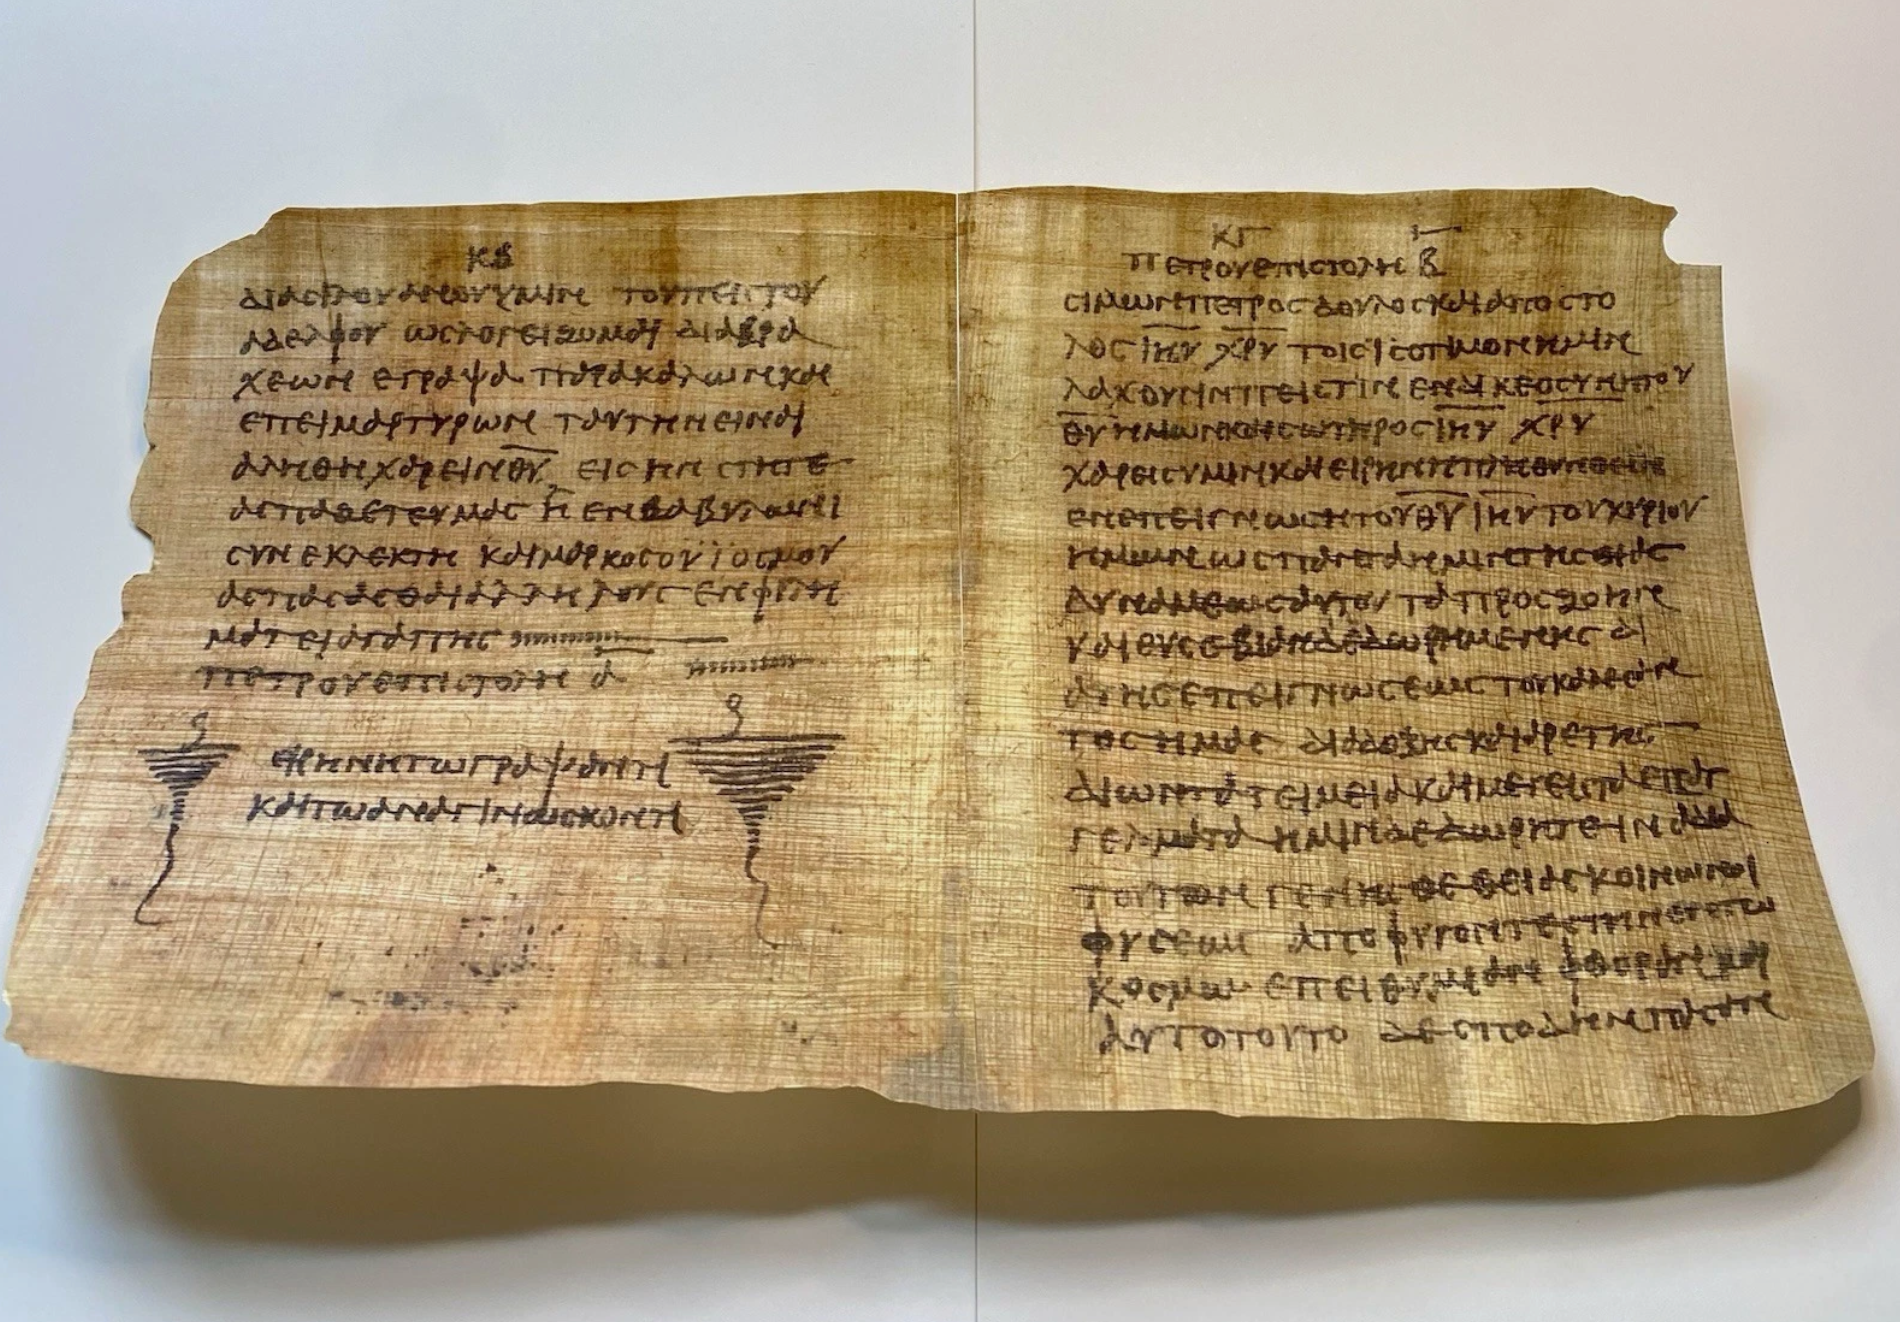 κβ
διασιλουανουυμιν τουπειστου
αδελφου ωσλογειζομαι διαβρα
χεων εγραψα παρακαλωνκαι
επειμαρτυρων ταυτηνειναι
αληθηχαρεινθ̅υ̅ εισ ην στητε
ασπαζετευμασ η ενβαβυλωνι
συνεκλεκτη καιμαρκοσουϊοσμου
ασπασασθαιαλληλουσ ενφιλη
ματειαγαπησ
πετρουεπιστολη α̅
ειρηνητωγραψαντι
καιτωαναγινωσκοντι
κγ
πετρουεπιστολη β̅
σιμωνπετροσδουλοσκαιαποστο
λοσι̅η̅υ̅ χ̅ρ̅υ̅ τοισισοτιμονημιν
λαχουσινπειστιν ενδικεοσυνητου
θ̅υ̅ημωνκαισωτηροσι̅η̅υ̅ χ̅ρ̅υ̅
χαρεισυμινκαιειρηνηπληθυνθειη
ενεπειγνωσητουθ̅υ̅ ι̅η̅υ̅τουκυριου
ημων ωσπανταημιντησθιασ
δυναμεωσαυτου ταπροσζοην
καιευσεβιανδεδωρημενησ δι
ατησεπειγνωσεωσ τουκαλεσαν
τοσημασ διαδοξησκαιαρετησ
διωντατειμειακαιμεγεισταεπαν
γελματα ημινδεδωρητε ιναδια
τουτων γενησθεθειασκοινωνοι
φυσεωσ αποφυγοντεστηνεντω
κοσμω επειθυμιαν φθορασκαι
αυτοτουτο δεσποδηνπασαν